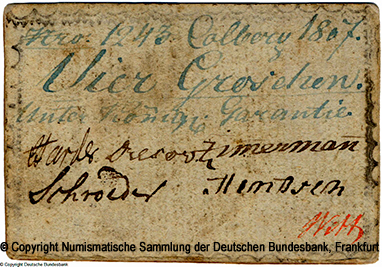 Nro. 1243. Colberg 1807.
Vier Groschen.
Unter Königl. Garantie.
Dresow Zimmerman
Schroeder
© Copyright Numismatische Sammlung der Deutschen Bundesbank, Frankfurt
© Copyright Deutsche Bundesbank